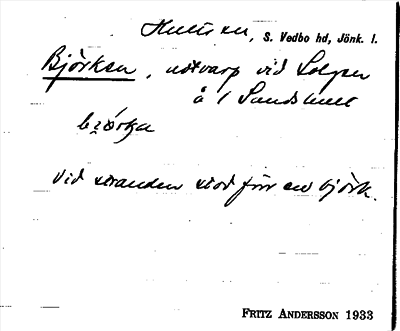 Hultsken, S. Vedbo hd, Jönk. l.
Björken, notvarp vid Solgen
å 1 Sandshult
bʒörka
Vid stranden stod förr en björk.
FRITZ ANDERSSON 1933